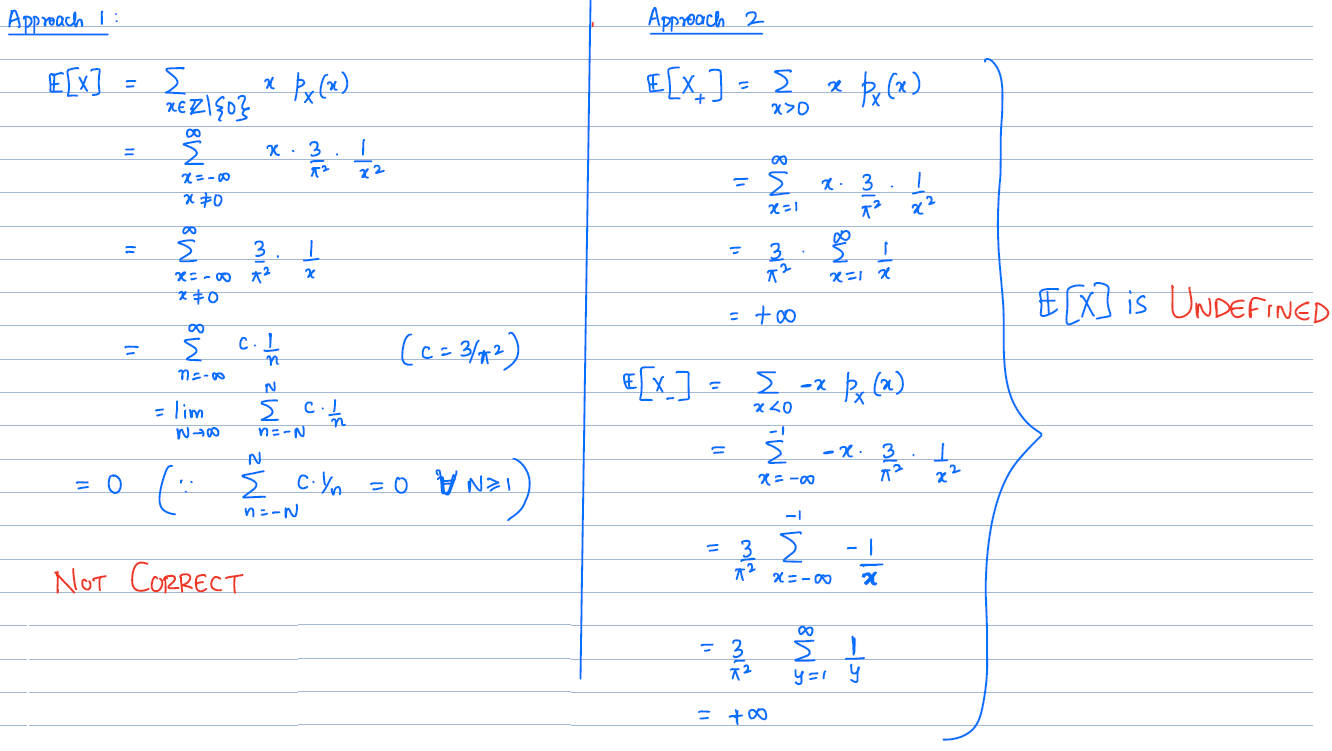 Approach 1:
E[X] = Σ_{x∈Z\{0}} x p_X(x)
= Σ_{x=-∞, x≠0}^{∞} x · 3/π² · 1/x²
= Σ_{x=-∞, x≠0}^{∞} 3/π² · 1/x
= Σ_{n=-∞}^{∞} c · 1/n (c = 3/π²)
= lim_{N→∞} Σ_{n=-N}^{N} c · 1/n
= 0 (∵ Σ_{n=-N}^{N} c · 1/n = 0 ∀ N⩾1)
NOT CORRECT
Approach 2
E[X_+] = Σ_{x>0} x p_X(x)
= Σ_{x=1}^{∞} x · 3/π² · 1/x²
= 3/π² · Σ_{x=1}^{∞} 1/x
= +∞
E[X_-] = Σ_{x<0} -x p_X(x)
= Σ_{x=-∞}^{-1} -x · 3/π² · 1/x²
= 3/π² Σ_{x=-∞}^{-1} -1/x
= 3/π² Σ_{y=1}^{∞} 1/y
= +∞
E[X] is UNDEFINED